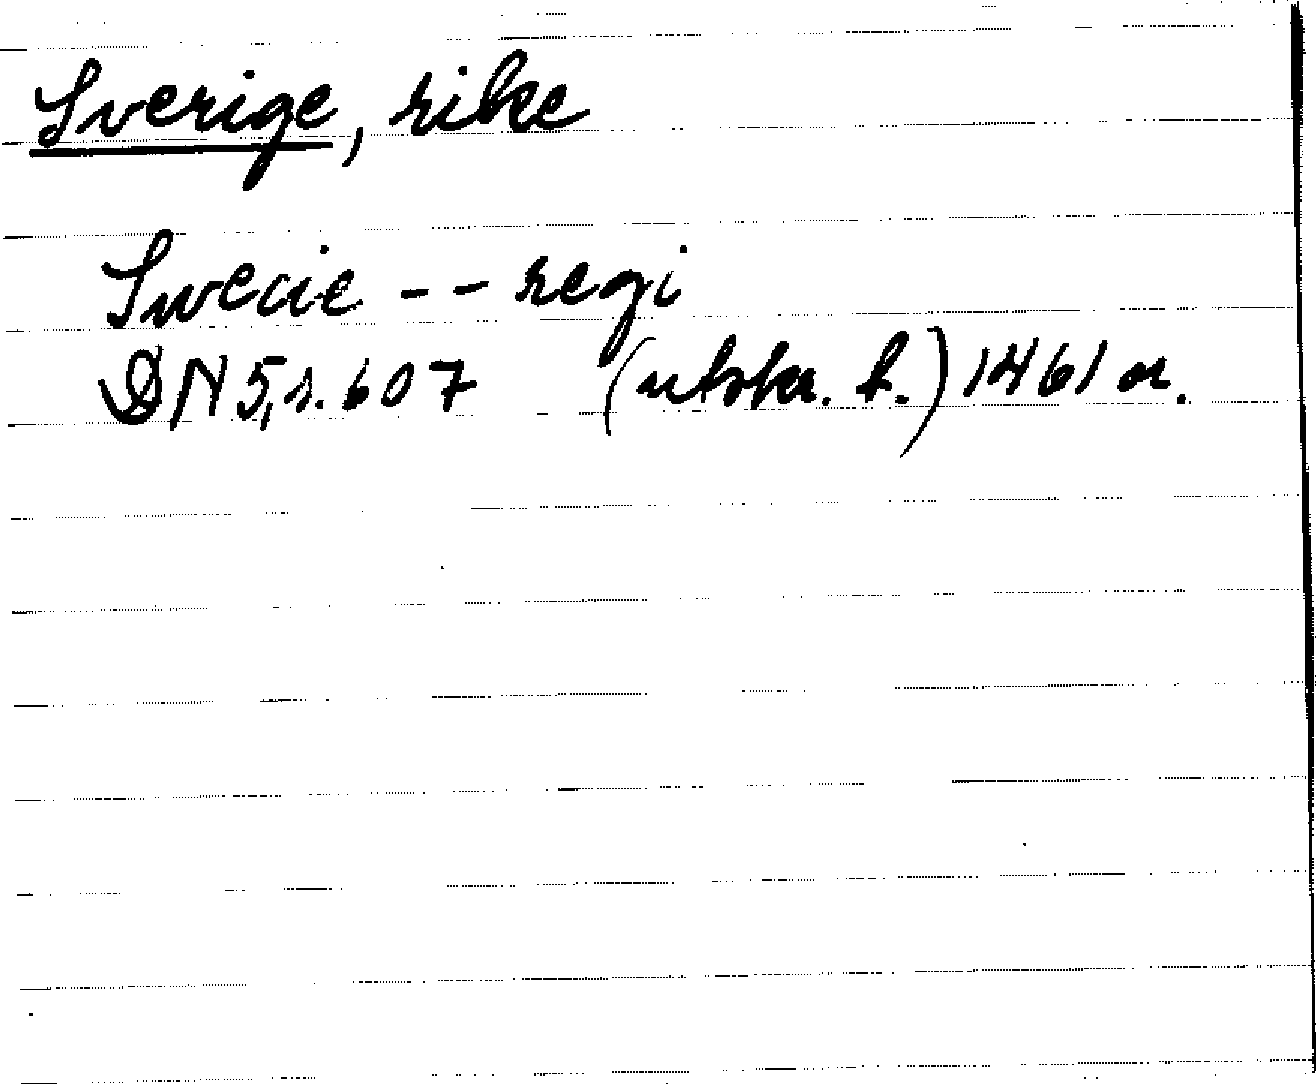 Sverige, rike
Swecie -- regi
DN 5, s. 607 (utskr. l.) 1461 or.